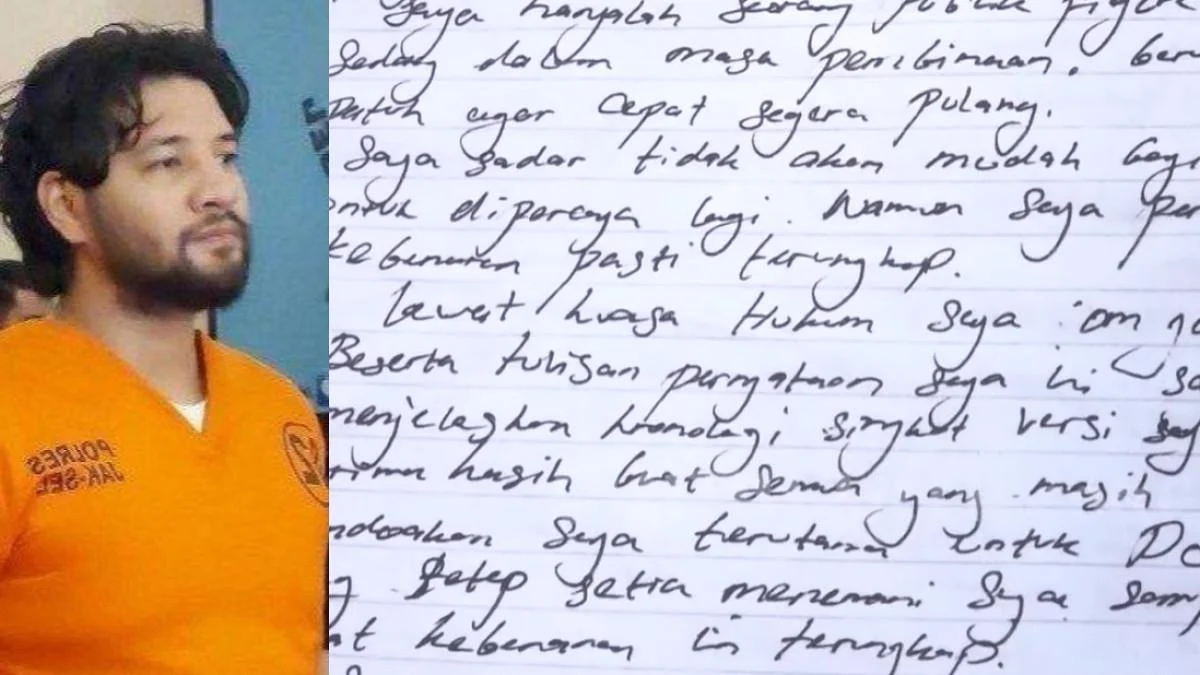 POLRES
JAK-SEL
Saya hanyalah seorang publik figur
sedang dalam masa pembinaan. beru
patuh agar cepat segera pulang.
Saya sadar tidak akan mudah bagi
untuk dipercaya lagi. Namun Saya per
kebenaran pasti terungkap.
Lewat kuasa Hukum Saya om
Beserta tulisan pernyataan Saya ini sa
menjelaskan kronologi singkat versi say
rima kasih buat Semua yang masih
ndoakan Saya terutama untuk Do
g tetap setia menemani Saya samp
at kebenaran ini terungkap.